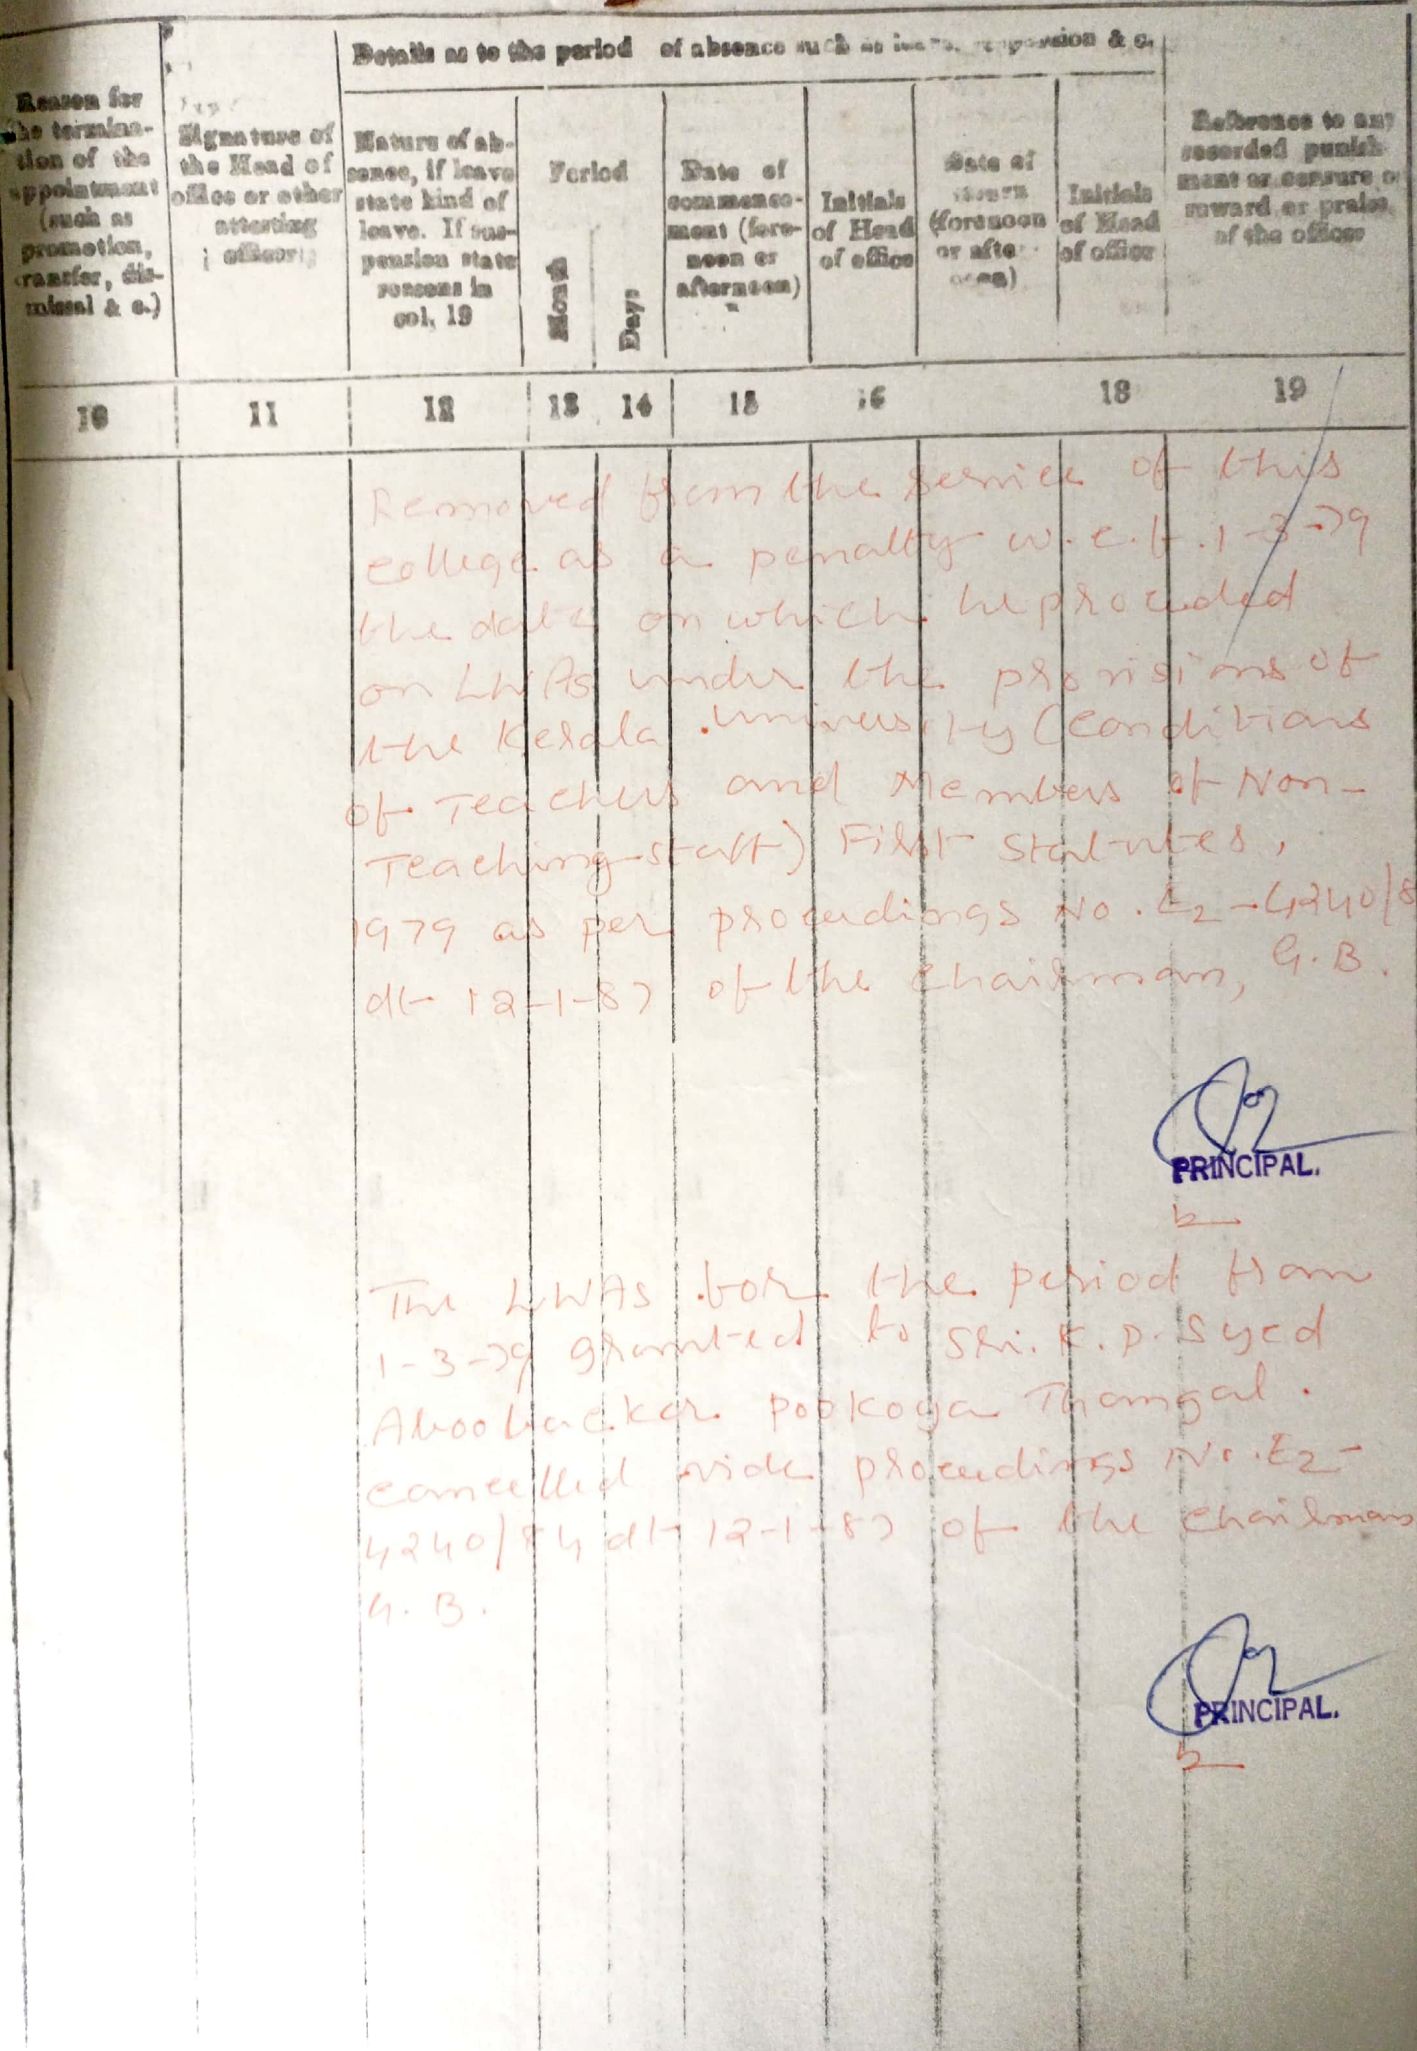 Details as to the period of absence such as
Reason for
the termina-
tion of the
appointment
(such as
promotion,
transfer, dis-
missal & c.)
Signature of
the Head of
office or other
attesting
officer
Nature of ab-
sence, if leave
state kind of
leave. If sus-
pension state
reasons in
col. 19
Period
Month
Days
Date of
commence-
ment (fore-
noon or
afternoon)
Initials
of Head
of office
Date of
return
(forenoon
or after-
noon)
Initials
of Head
of officer
Reference to any
recorded punish
ment or censure or
reward or praise
of the officer
10 11 12 13 14 15 16 18 19
Removed from the service of this
college as a penalty w.e.f. 1-3-79
the date on which he proceeded
on LWAs under the provisions of
the Kerala University (Conditions
of Teachers and Members of Non-
Teaching staff) First Statutes,
1979 as per proceedings No. E2-4240/8
dt 12-1-87 of the Chairman, G.B.
PRINCIPAL.
The LWAs for the period from
1-3-79 granted to Shri. K.P. Syed
Aboobacker Pookoya Thangal.
cancelled vide proceedings No. E2-
4240/84 dt 12-1-87 of the Chairman
G.B.
PRINCIPAL.